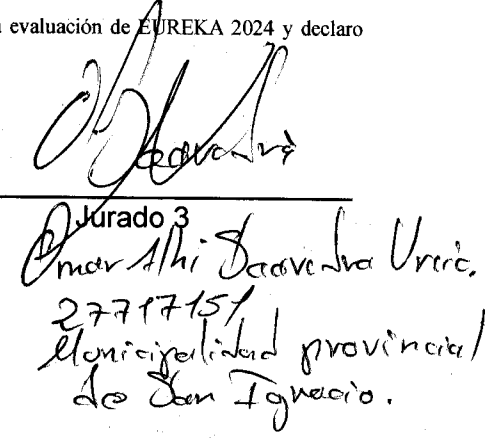 evaluación de EUREKA 2024 y declaro
Saavedra
Jurado 3
Omar Saavedra
27717151
Municipalidad provincial
de San Ignacio.